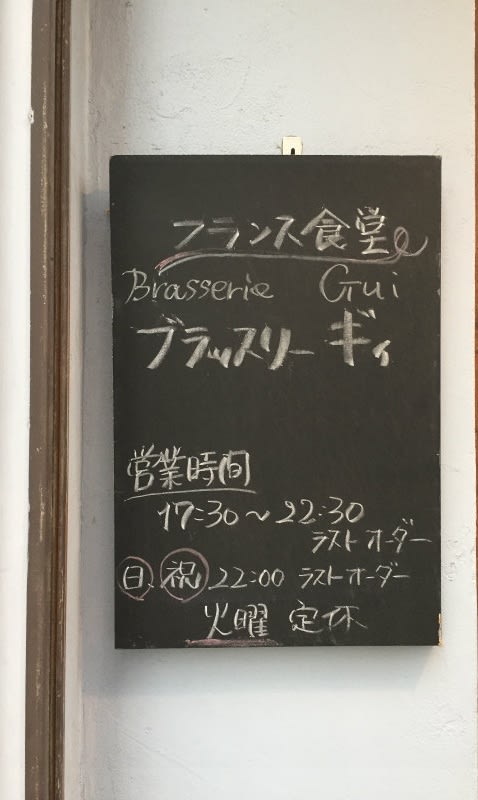 フランス食堂
Brasserie Gui
ブラッスリー ギィ
営業時間
17:30～22:30
ラストオーダー
日.祝 22:00 ラストオーダー
火曜 定休